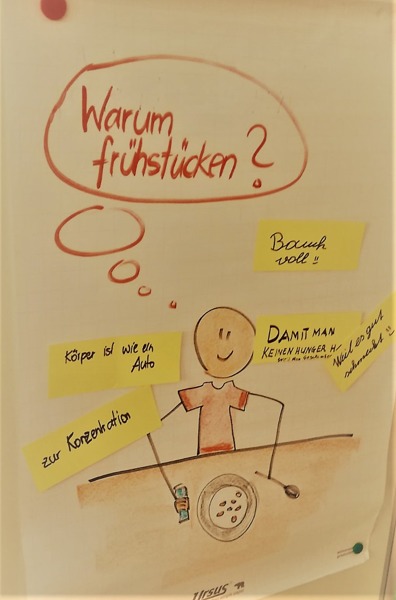 Warum
frühstücken?
Bauch
voll
DAMIT MAN
KEINEN HUNGER
Weil es gut
schmeckt
Körper ist wie ein
Auto
zur Konzentration
Ursus